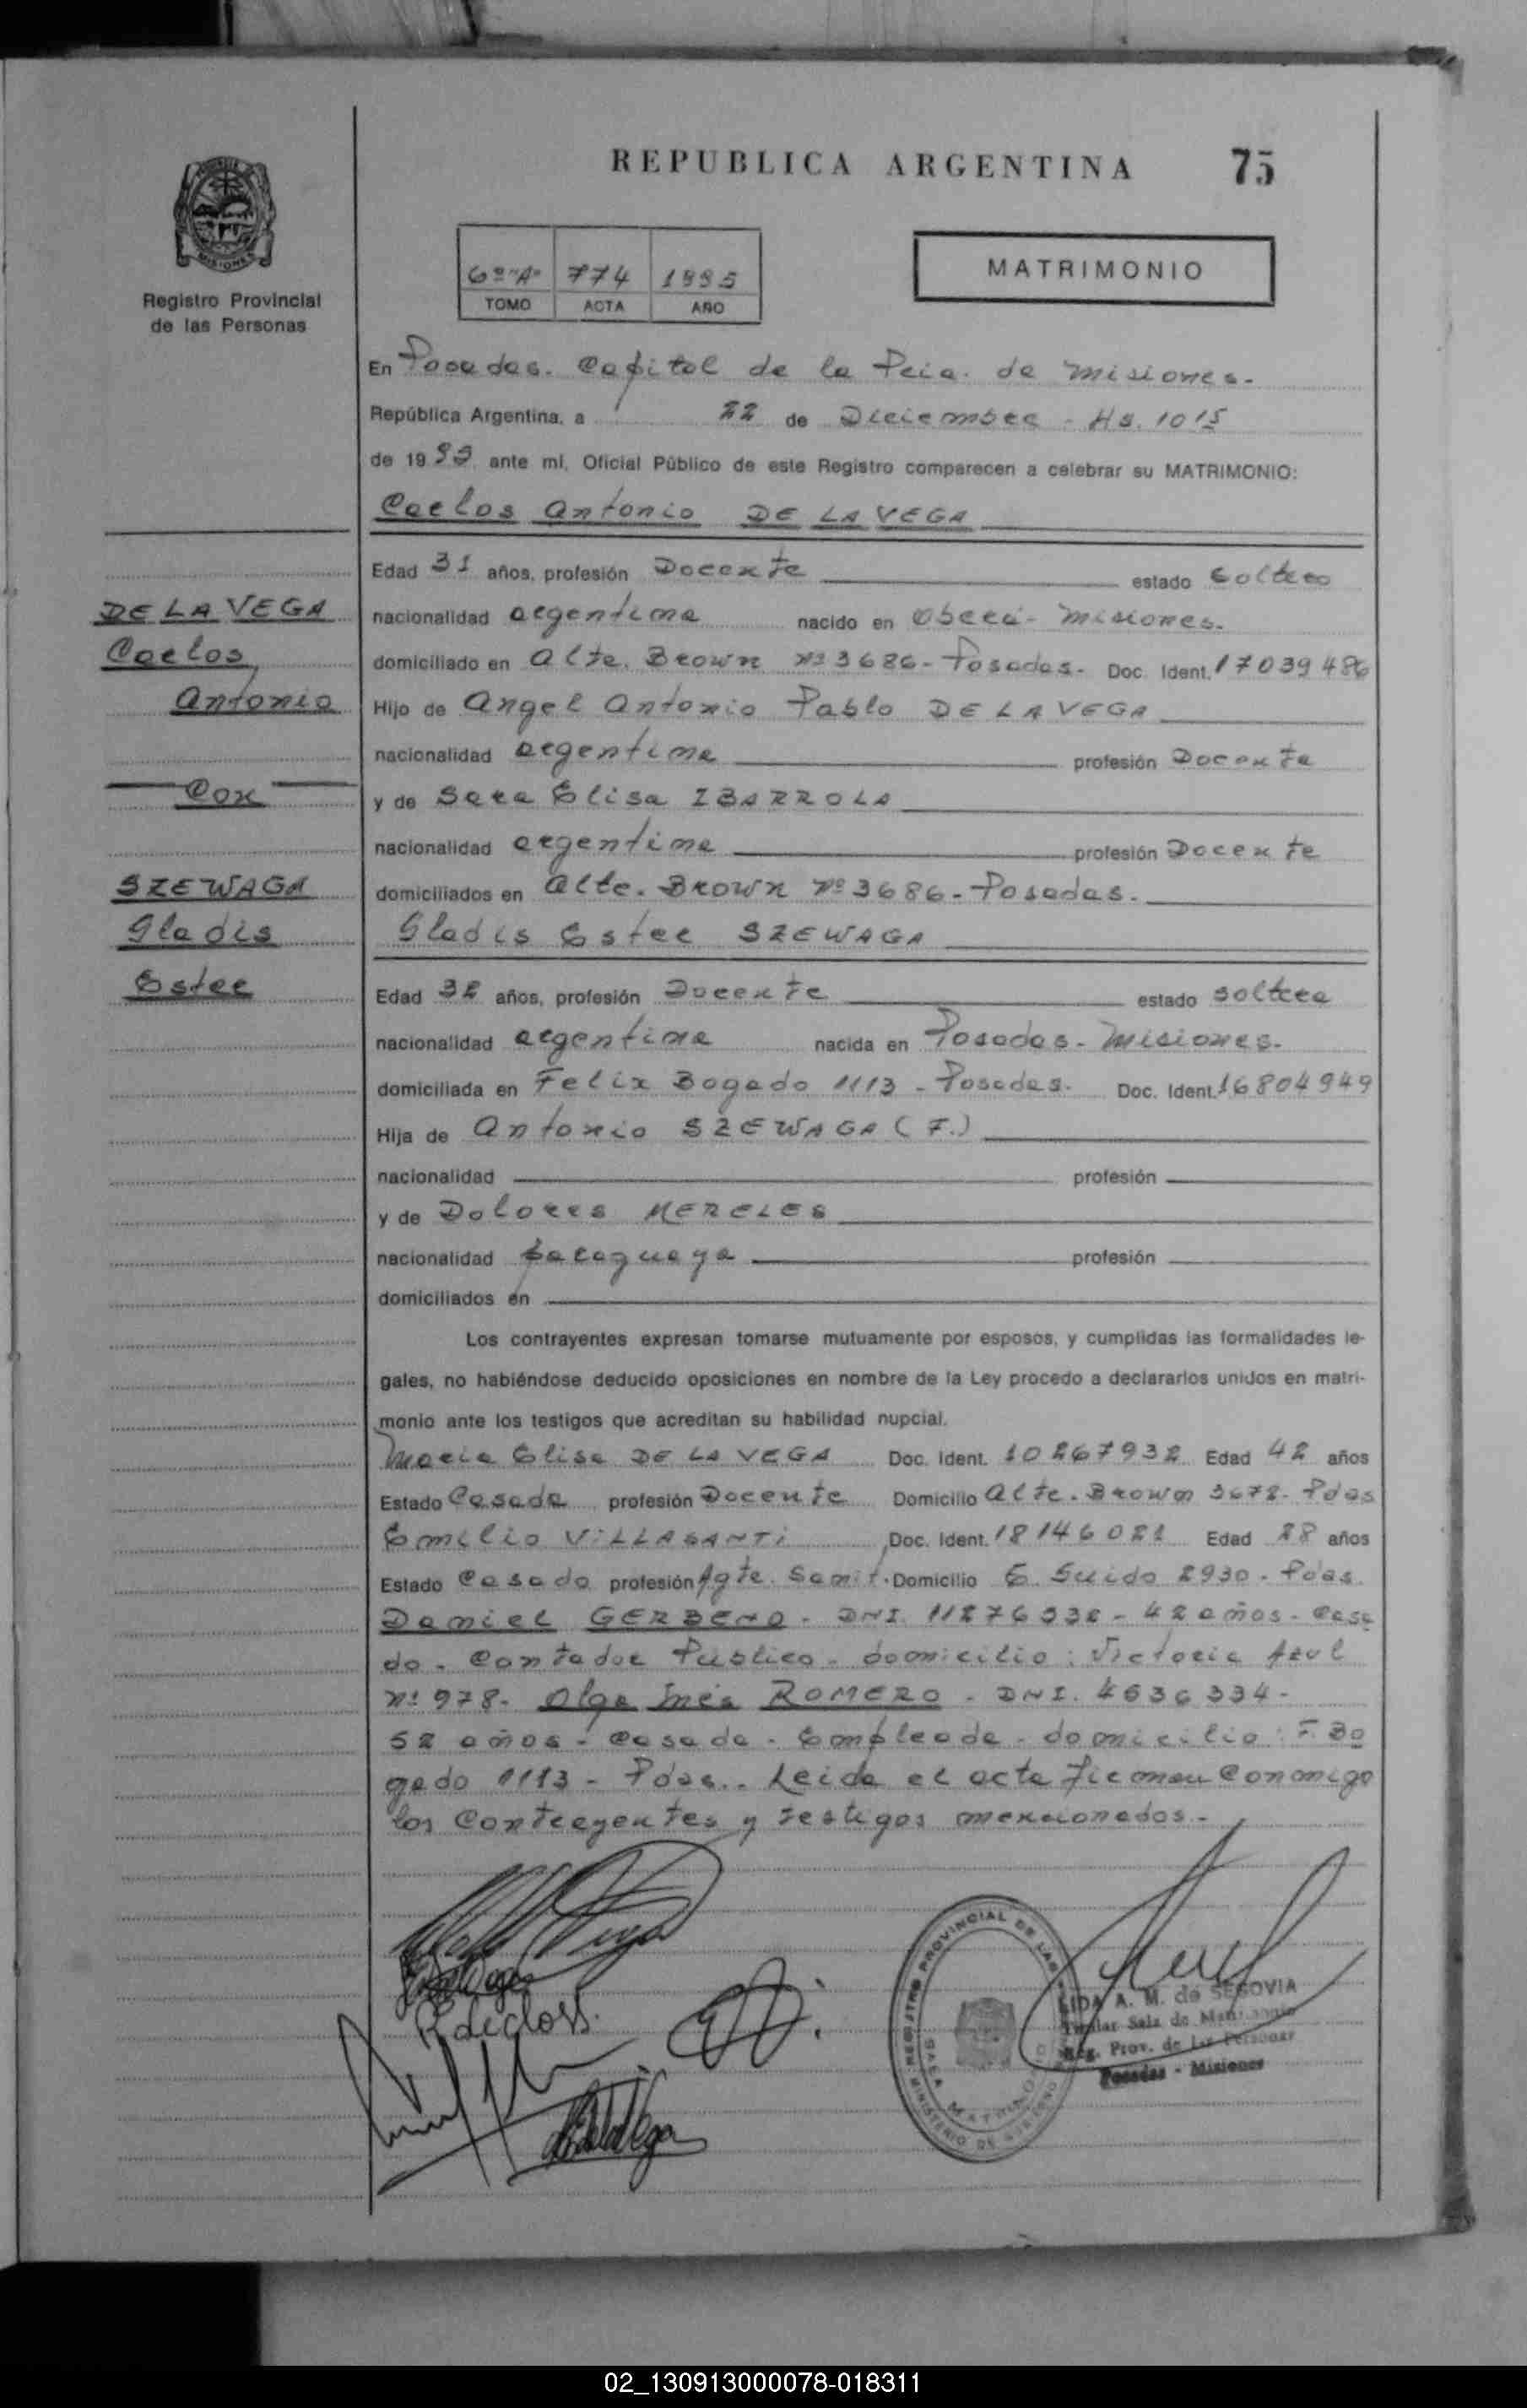 REPUBLICA ARGENTINA 75
MISIONES
Registro Provincial
de las Personas
6º "A" 774 1995
TOMO ACTA AÑO
MATRIMONIO
En Posadas. Capital de la Pcia. de Misiones.
República Argentina, a 22 de Diciembre - Hs. 1015
de 19 95 ante mí, Oficial Público de este Registro comparecen a celebrar su MATRIMONIO:
Carlos Antonio DE LA VEGA
Edad 31 años, profesión Docente estado Soltero
DE LA VEGA
nacionalidad argentina nacido en Oberá - Misiones.
Carlos
domiciliado en Alte. Brown Nº 3686 - Posadas. Doc. Ident. 17039486
Antonio
Hijo de Angel Antonio Pablo DE LA VEGA
nacionalidad argentina profesión Docente
Con
y de Sara Elisa IBARROLA
nacionalidad argentina profesión Docente
SZEWAGA
domiciliados en Alte. Brown Nº 3686 - Posadas.
Gladis
Gladis Ester SZEWAGA
Ester
Edad 32 años, profesión Docente estado soltera
nacionalidad argentina nacida en Posadas - Misiones.
domiciliada en Felix Bogado 1113 - Posadas. Doc. Ident. 16804949
Hija de Antonio SZEWAGA (F.)
nacionalidad profesión
y de Dolores MERELES
nacionalidad paraguaya profesión
domiciliados en
Los contrayentes expresan tomarse mutuamente por esposos, y cumplidas las formalidades le-
gales, no habiéndose deducido oposiciones en nombre de la Ley procedo a declararlos unidos en matri-
monio ante los testigos que acreditan su habilidad nupcial.
Maria Elisa DE LA VEGA Doc. Ident. 10267932 Edad 42 años
Estado Casada profesión Docente Domicilio Alte. Brown 3678 - Pdas
Emilio VILLASANTI Doc. Ident. 18146021 Edad 28 años
Estado Casado profesión Agte. Sanit. Domicilio E. Guido 2930 - Pdas.
Daniel GERBENO - DNI. 11276332 - 42 años - Casa
do - Contador Publico - domicilio: Victoria Azul
Nº 978 - Olga Inés ROMERO - DNI. 4636334 -
52 años - Casada - Empleada - domicilio: F. Bo
gado 1113 - Pdas.. Leida el acta firman conmigo
los contrayentes y testigos mencionados. -
REGISTRO PROVINCIAL DE LAS
MINISTERIO DE GOBIERNO
LIDA A. M. de SEGOVIA
Titular Sala de Matrimonio
Reg. Prov. de las Personas
Posadas - Misiones
02_130913000078-018311